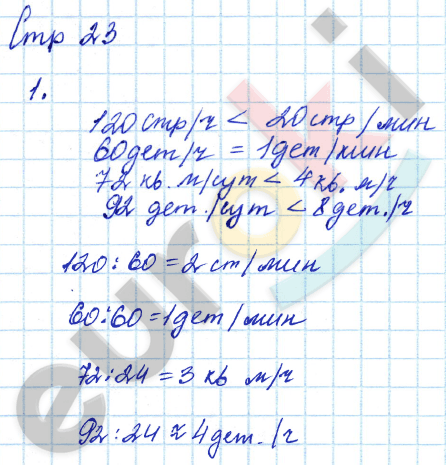 Стр 23
1.
120 стр/ч < 20 стр/мин
60 дет/ч = 1 дет/мин
72 кв. м/сут < 4 кв. м/ч
92 дет./сут < 8 дет./ч
120 : 60 = 2 ст/мин
60 : 60 = 1 дет/мин
72 : 24 = 3 кв м/ч
92 : 24 ≈ 4 дет./ч
euroki